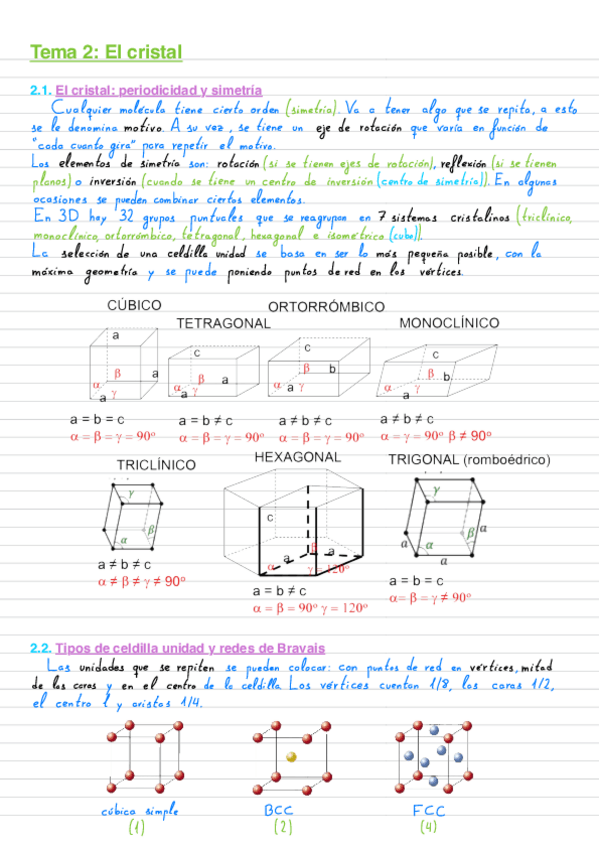 Tema 2: El cristal
2.1. El cristal: periodicidad y simetría
Cualquier molécula tiene cierto orden (simetría). Va a tener algo que se repita, a esto
se le denomina motivo. A su vez, se tiene un eje de rotación que varía en función de
"cada cuanto gira" para repetir el motivo.
Los elementos de simetría son: rotación (si se tienen ejes de rotación), reflexión (si se tienen
planos) o inversión (cuando se tiene un centro de inversión (centro de simetría)). En algunas
ocasiones se pueden combinar ciertos elementos.
En 3D hay 32 grupos puntuales que se reagrupan en 7 sistemas cristalinos (triclínico,
monoclínico, ortorrómbico, tetragonal, hexagonal e isométrico (cubo)).
La selección de una celdilla unidad se basa en ser lo más pequeña posible, con la
máxima geometría y se puede poniendo puntos de red en los vértices.
CÚBICO
ORTORRÓMBICO
TETRAGONAL
MONOCLÍNICO
a
c
c
c
β
a
β
a
β
b
β
b
α
a
γ
α
a
γ
α
a
γ
α
a
γ
a = b = c
a = b ≠ c
a ≠ b ≠ c
a ≠ b ≠ c
α = β = γ = 90º
α = β = γ = 90º
α = β = γ = 90º
α = γ = 90º β ≠ 90º
TRICLÍNICO
HEXAGONAL
TRIGONAL (romboédrico)
γ
β
α
c
β
a
a
α
γ = 120º
γ
β
a
a
α
a
a ≠ b ≠ c
α ≠ β ≠ γ ≠ 90º
a = b ≠ c
α = β = 90º γ = 120º
a = b = c
α= β = γ ≠ 90º
2.2. Tipos de celdilla unidad y redes de Bravais
Las unidades que se repiten se pueden colocar: con puntos de red en vértices, mitad
de las caras y en el centro de la celdilla. Los vértices cuentan 1/8, las caras 1/2,
el centro 1 y aristas 1/4.
cúbica simple
BCC
FCC
(1)
(2)
(4)